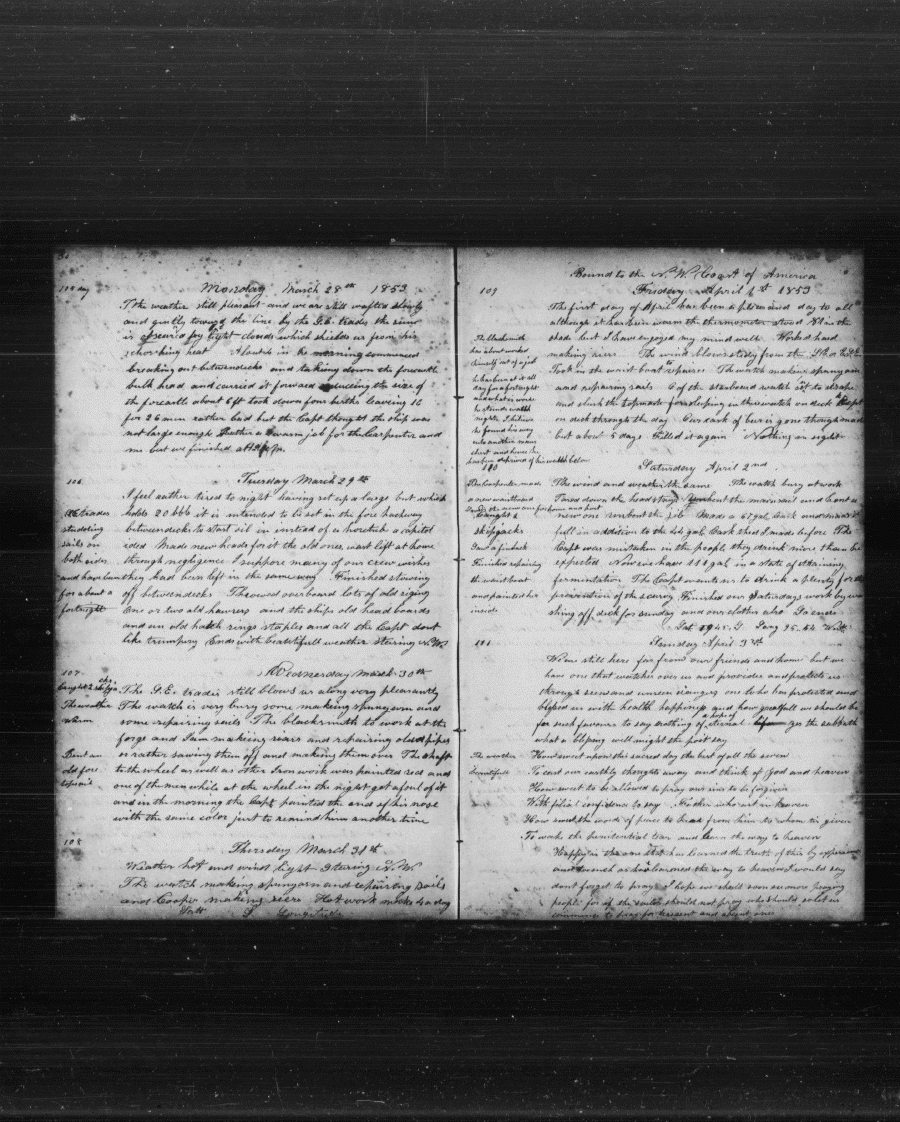 105 day
Monday March 28th 1853
The weather still pleasant and we are still wafted slowly
and gently towing the line by the S.E. trades the sun
is obscured by light clouds which shields us from his
schorching heat About in the morning commenced
breaking out betweendecks and taking down the forecastle
bulk head and carried it forward reducing the size of
the forecastle about 6ft took down four births leaving 16
for 26 men rather bad but the Capt thought the ship was
not large enough Rather a warm job for the Carpenter and
me but we finished at P.M.
106
Tuesday March 29th
I feel rather tired to night having set up a large but which
holds 20 bbls it is intended to be set in the fore hachway
betweendecks to start oil in instead of a
Made new heads for it the old ones want left at home
through negligence I suppose many of our crew wishes
they had been left in the same way Finished stowing
off betweendecks Throwed overboard lots of old riging
One or two old hawsers and the ships old head boards
and an old hatch rings staples and all the Capt dont
like trumpery Ends with beautifull weather Stering N.W.
SE trades
studding
sails on
both sides
and have been
for about a
fortnight
107
Wednesday March 30th
The S.E. trades still blows us along very pleasantly
The watch is very busy some making spunyarn and
some repairing sails The blacksmith to work at the
forge and I am making risers and repairing old pipes
or rather sawing them off and making them over The shaft
to the wheel as well as other Iron work was painted red and
one of the men while at the wheel in the night got afoul of it
and in the morning the Capt painted the end of his nose
with the same color just to remind him another time
Caught 2
The weather
warm
Bent an
old fore
topsail
108
Thursday March 31st
Weather hot and wind light Stering N.W.
The watch making spunyarn and repairing sails
and Cooper making risers Hot work now a day
Latt S Longitude
Bound to the N.W. Coast of America
109
Friday April 1st 1853
The first day of April has been a pleasant day to all
although it has been warm the thermometer stood 81 in the
shade but I have enjoyed my mind well Worked hard
making risers The wind blows stedy from the S.E. or E.S.E.
Took in the waist boat repairs The watch making spunyarn
and repairing sails 6 of the starboard watch set to scrape
and slush the topmasts for sleeping in their watch on deck & kept
on deck through the day Our cask of beer is gone though made
but about 5 days Filled it again Nothing in sight
The blacksmith
has about worked
himself out of a job
he has been at it all
day for a fortnight
and what is worse
he stands watch
nights I believe
he found his way
into another mans
chest and hense he
has been deprived of his watch below
110
Saturday April 2nd
The wind and weather the same The watch busy at work
Tared down the head stays Unbent the main sail and bent a
new one unbent the job Made a 67 gal Cask and filled it
full in addition to the 44 gal Cask that I made before The
Capt was mistaken in the people they drink more than he
expected Now we have 111 gal in a state of
fermentation The Capt wants us to drink a plenty for a
prevention of the scurvy Finished our Saturdays work by wa
shing off deck for sunday and our clothes also So ends
Lat 5 45 S Long 95.54 West
The Carpenter made
a new waist board
Caught 2
skipjacks
Saw a finback
Finished repairing
the waist boat
and painted her
inside
111
Sunday April 3rd
We are still here far from our friends and home but we
have one that watches over us and provides and protects us
through seen and unseen dangers one who has protected and
blessed us with health happiness and how greatfull we should be
for such favours to say nothing of a hope of eternal life yes the sabbath
what a blessing well might the poet say
How sweet upon this sacred day the best of all the seven
To cast our earthly thoughts away and think of God and heaven
How sweet to be allowed to pray our sins to be forgiven
With filial confidence to say Father who art in heaven
How sweet the words of peace to hear from him to whom tis given
To wake the penitential tear and learn the way to heaven
Happy is the one that has learned the truth of this by experience
and as has learned the way to heaven I would say
dont forget to pray I hope we shall soon see more praying
people for if the sailor should not pray who should so let us
commence to pray for present and absent ones
The weather
is
beautifull